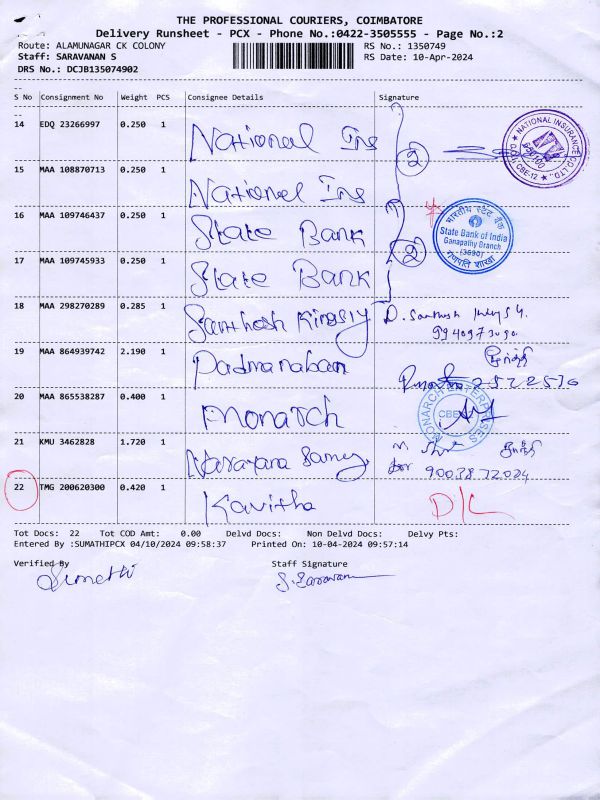 THE PROFESSIONAL COURIERS, COIMBATORE
Delivery Runsheet - PCX - Phone No.:0422-3505555 - Page No.:2
Route: ALAMUNAGAR CK COLONY RS No.: 1350749
Staff: SARAVANAN S RS Date: 10-Apr-2024
DRS No.: DCJB135074902
S No Consignment No Weight PCS Consignee Details Signature
14 EDQ 23266997 0.250 1 National Ins 2
NATIONAL INSURANCE CO. LTD. CBE-12
15 MAA 108870713 0.250 1 National Ins
16 MAA 109746437 0.250 1 State Bank 2
भारतीय स्टेट बैंक
State Bank of India
Ganapathy Branch
17 MAA 109745933 0.250 1 State Bank
18 MAA 298270289 0.285 1 Santhosh Kingsly D. Santhosh
19 MAA 864939742 2.190 1 Padmanaban
20 MAA 865538287 0.400 1 Monarch
MONARCH ENTERPRISES CBE
21 KMU 3462828 1.720 1 Narayana Samy
22 TMG 200620300 0.420 1 Kavitha D/L
Tot Docs: 22 Tot COD Amt: 0.00 Delvd Docs: Non Delvd Docs: Delvy Pts:
Entered By :SUMATHIPCX 04/10/2024 09:58:37 Printed On: 10-04-2024 09:57:14
Verified By Staff Signature
Sumathi S. Saravanan